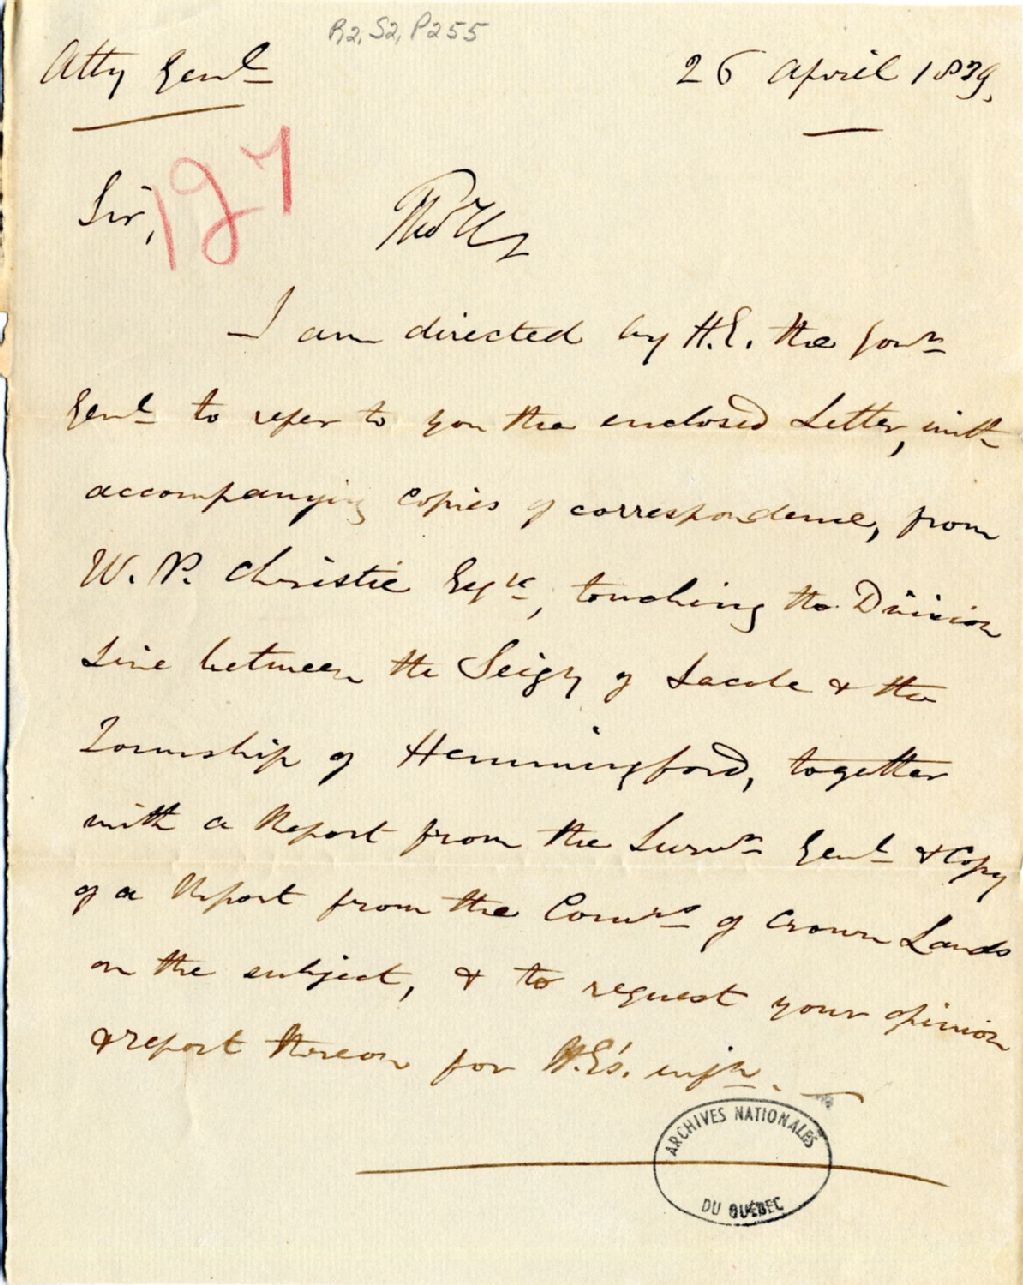 R2, S2, P255
Atty Genl
26 April 1839.
127
Sir,
I am directed by H.E. the Govr
Genl to refer to you the enclosed Letter, with
accompanying Copies of correspondence, from
W. P. Christie Esqre, touching the Division
Line between the Seigry of Lacole & the
Township of Hemmingford, together
with a Report from the Survr Genl & Copy
of a Report from the Comrs of Crown Lands
on the subject, & to request your opinion
& report thereon for H.E's. infn.
ARCHIVES NATIONALES
DU QUÉBEC